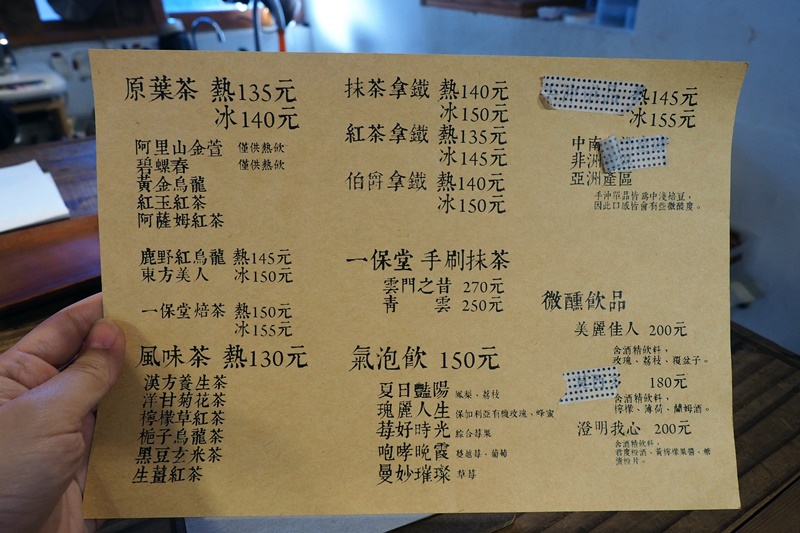 原葉茶 熱135元
冰140元
阿里山金萱 僅供熱飲
碧螺春 僅供熱飲
黃金烏龍
紅玉紅茶
阿薩姆紅茶
鹿野紅烏龍 熱145元
東方美人 冰150元
一保堂焙茶 熱150元
冰155元
風味茶 熱130元
漢方養生茶
洋甘菊花茶
檸檬草紅茶
梔子烏龍茶
黑豆玄米茶
生薑紅茶
抹茶拿鐵 熱140元
冰150元
紅茶拿鐵 熱135元
冰145元
伯爵拿鐵 熱140元
冰150元
一保堂 手刷抹茶
雲門之昔 270元
青雲 250元
氣泡飲 150元
夏日豔陽 鳳梨、荔枝
瑰麗人生 保加利亞有機玫瑰、蜂蜜
莓好時光 綜合莓果
咆哮晚霞 蔓越莓、葡萄
曼妙璀璨 草莓
熱145元
冰155元
中南
非洲
亞洲產區
手沖單品皆為中淺焙豆，
因此口感皆會有些微酸度。
微醺飲品
美麗佳人 200元
含酒精飲料，
玫瑰、荔枝、覆盆子。
180元
含酒精飲料，
檸檬、薄荷、蘭姆酒。
澄明我心 200元
含酒精飲料，
君度橙酒、黃檸檬果醬、糖
漬橙片。